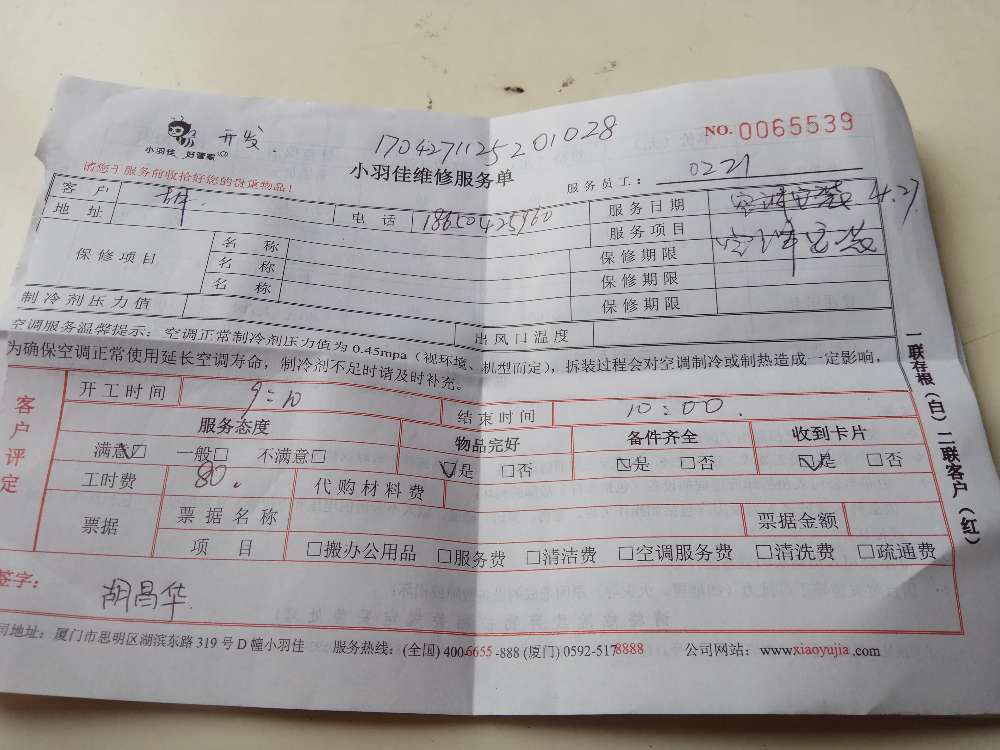 开发
1704271125201028
NO. 0065539
小羽佳 好管家
小羽佳维修服务单
请您于服务前收拾好您的贵重物品!
服务员工: 0221
客户 电话 服务日期 空调安装 4.27
地址 服务项目 空调安装
保修项目 名称 保修期限
名称 保修期限
名称 保修期限
制冷剂压力值 出风口温度
空调服务温馨提示: 空调正常制冷剂压力值为 0.45mpa (视环境、机型而定), 拆装过程会对空调制冷或制热造成一定影响,
为确保空调正常使用延长空调寿命, 制冷剂不足时请及时补充。
客户评定
开工时间 9:10 结束时间 10:00.
服务态度 物品完好 备件齐全 收到卡片
满意☑ 一般□ 不满意□ ☑是 □否 ☑是 □否 ☑是 □否
工时费 80. 代购材料费
票据 票据名称 票据金额
项目 □搬办公用品 □服务费 □清洁费 □空调服务费 □清洗费 □疏通费
签字: 胡昌华
司地址: 厦门市思明区湖滨东路 319 号 D 幢小羽佳 服务热线: (全国) 400-6655-888 (厦门) 0592-5178888 公司网站: www.xiaoyujia.com
一联存根(白)二联客户(红)